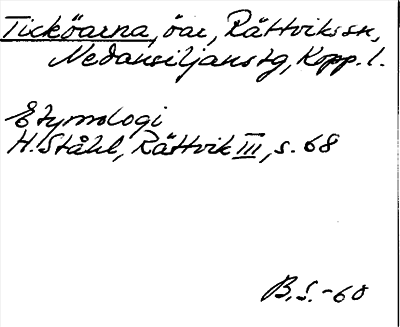 Ticköarna, öar, Rättviks sn,
Nedansiljans tg, Kopp. l.
Etymologi
H. Ståhl, Rättvik III, s. 68
B. S. -60